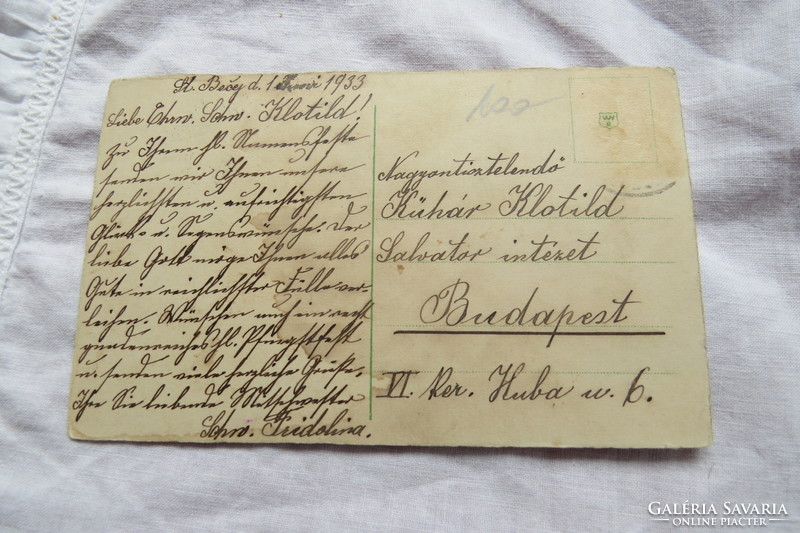 St. Bečej d. 1 Juni 1933
Liebe Ehrw. Schw. Klotild!
Zu Ihrem hl. Namensfeste
senden wir Ihnen unsere
herzlichsten u. aufrichtigsten
Glück- u. Segenswünsche. Der
liebe Gott möge Ihnen alles
Gute in reichlichster Fülle ver-
leihen. Wünschen auch ein recht
gnadenreiches hl. Pfingstfest
u. senden viele herzliche Grüße.
Ihre Sie liebende Mitschwester
Schw. Fridolina.
100
Nagyontisztelendő
Kühár Klotild
Salvator intézet
Budapest
VI. ker. Huba u. 6.
GALÉRIA SAVARIA
ONLINE PIACTÉR